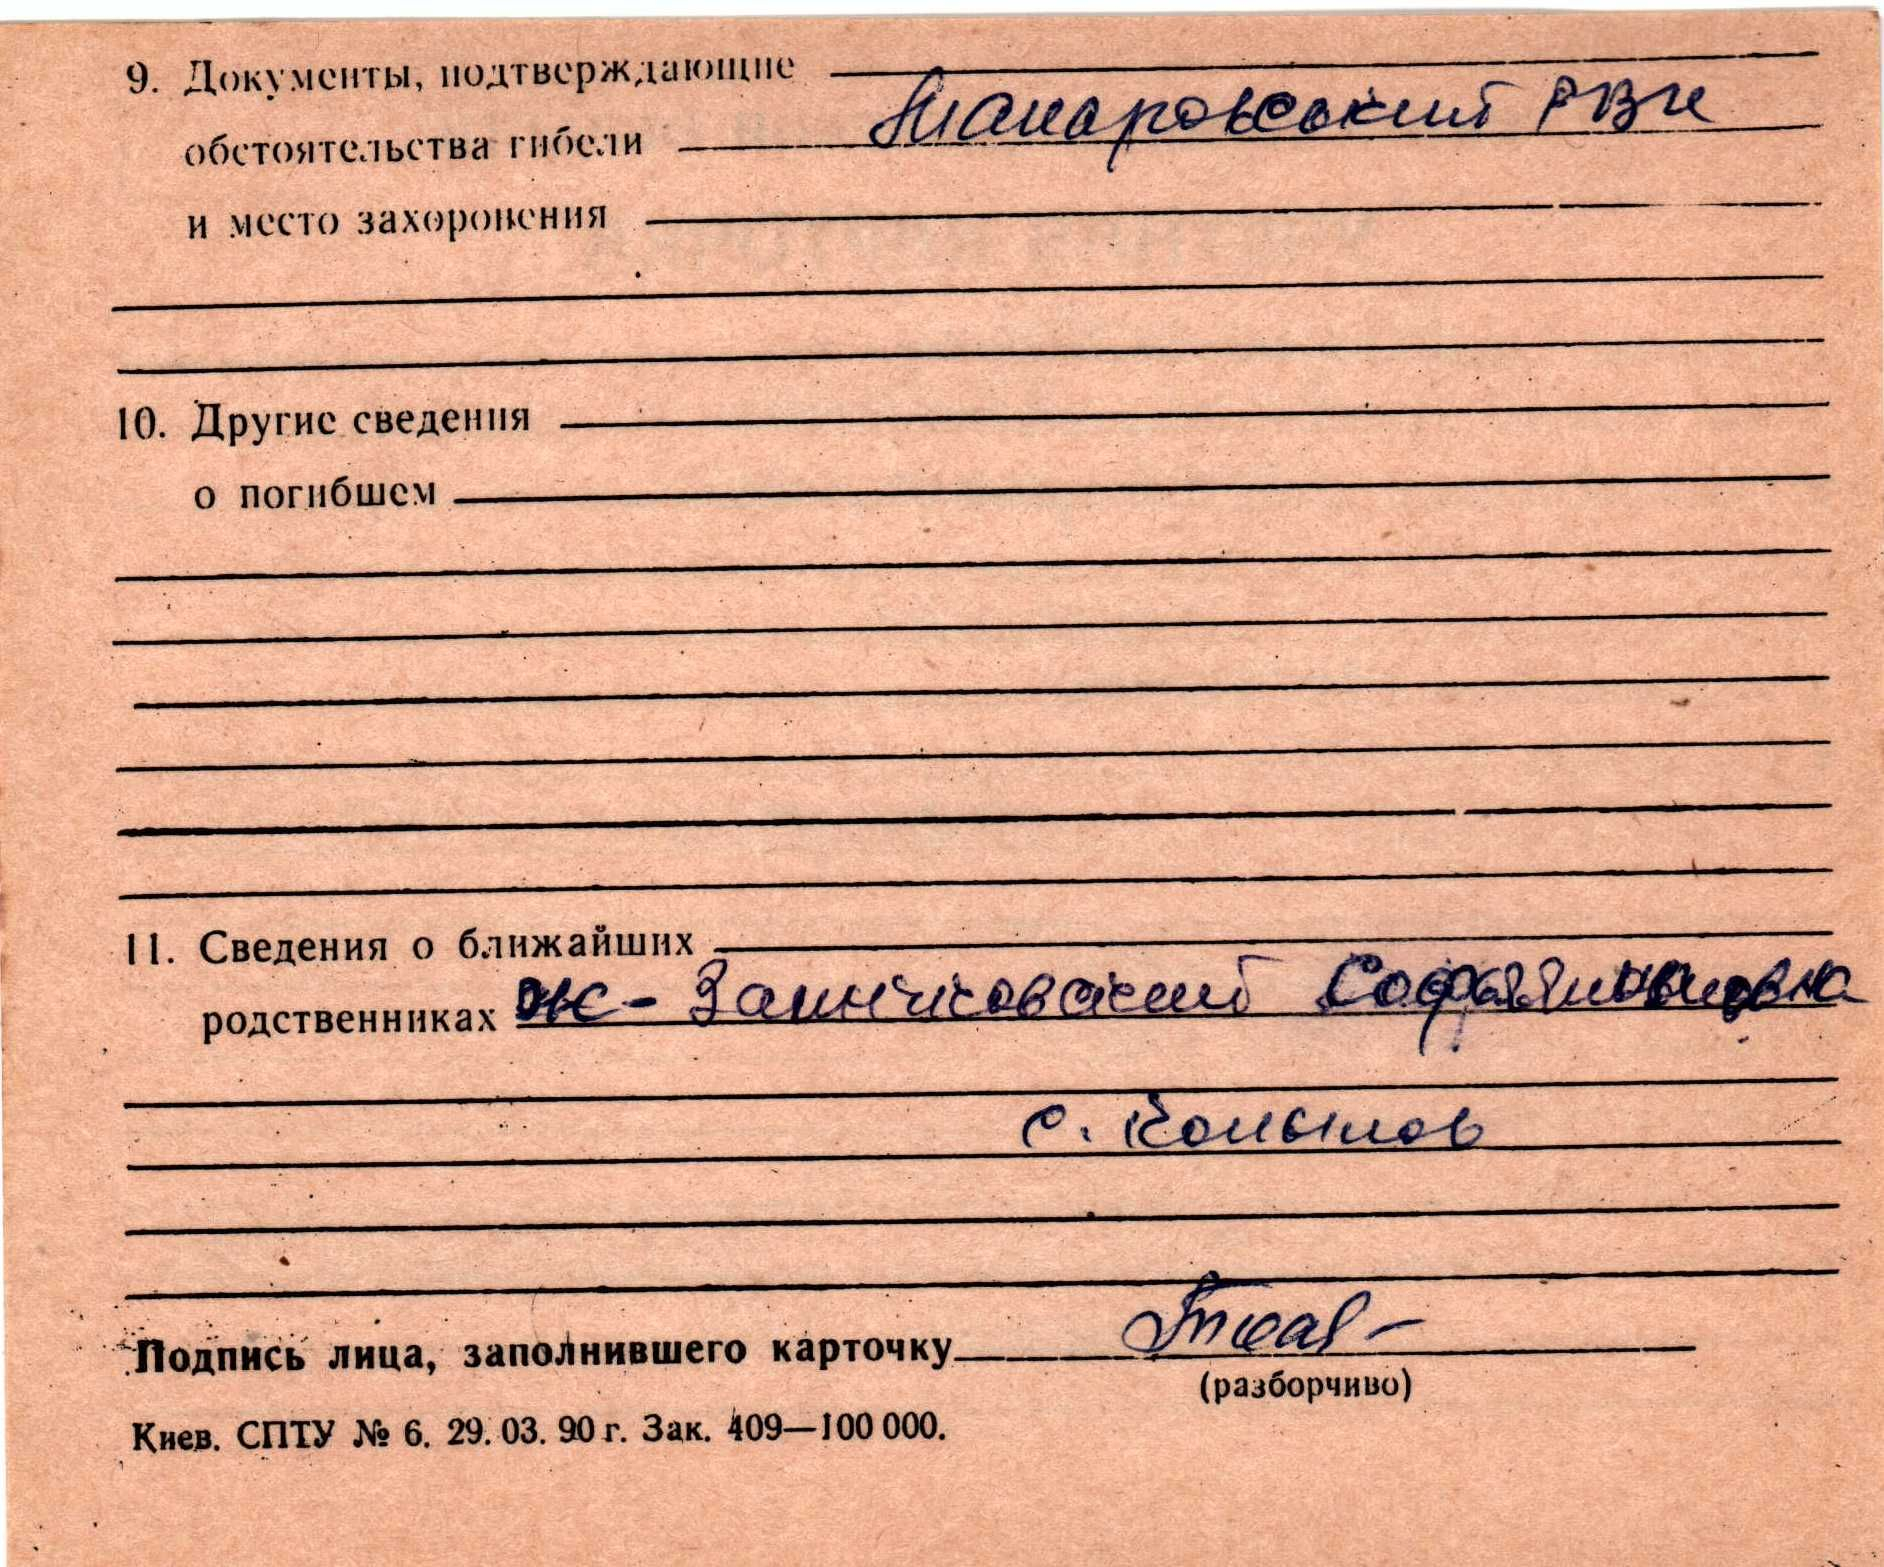 9. Документы, подтверждающие
обстоятельства гибели Макаровський РВК
и место захоронения
10. Другие сведения
о погибшем
11. Сведения о ближайших
родственниках ж-
с. Копылов
Подпись лица, заполнившего карточку
(разборчиво)
Киев. СПТУ № 6. 29. 03. 90 г. Зак. 409—100 000.